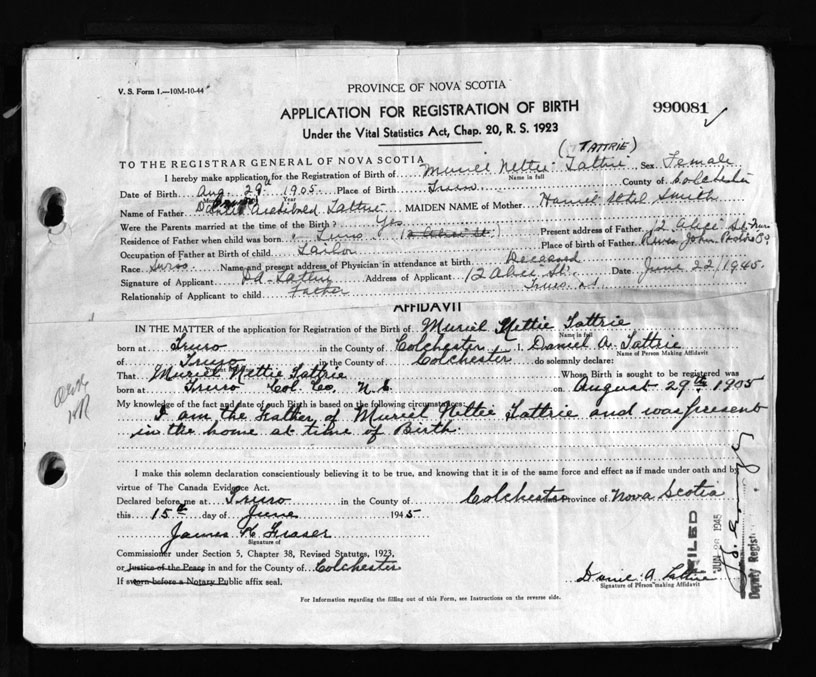 V. S. Form 1.—10M-10-44
PROVINCE OF NOVA SCOTIA
APPLICATION FOR REGISTRATION OF BIRTH
990081
Under the Vital Statistics Act, Chap. 20, R. S. 1923
(TATTRIE)
TO THE REGISTRAR GENERAL OF NOVA SCOTIA
I hereby make application for the Registration of Birth of Muriel Nettie Tattrie Sex Female
Name in full
Date of Birth Aug. 29th 1905 Place of Birth Truro County of Colchester
Year
Name of Father Daniel Archibald Tattrie MAIDEN NAME of Mother Harriet Ethel Smith
Were the Parents married at the time of the Birth? Yes Present address of Father 12 Alice St. Truro
Residence of Father when child was born Truro (12 Alice St.) Place of birth of Father River John Pictou Co
Occupation of Father at Birth of child Tailor
Race Name and present address of Physician in attendance at birth Deceased
Signature of Applicant D A Tattrie Address of Applicant 12 Alice St. Date June 22 1945.
Truro N.S.
Relationship of Applicant to child Father
AFFIDAVIT
IN THE MATTER of the application for Registration of the Birth of Muriel Nettie Tattrie
Name in full
born at Truro in the County of Colchester I, Daniel A. Tattrie
Name of Person Making Affidavit
of Truro in the County of Colchester do solemnly declare:
That Muriel Nettie Tattrie Whose Birth is sought to be registered was
born at Truro Col. Co. N.S. on August 29th 1905
My knowledge of the fact and date of such Birth is based on the following circumstances:
I am the Father of Muriel Nettie Tattrie and was present
in the home at time of Birth.
I make this solemn declaration conscientiously believing it to be true, and knowing that it is of the same force and effect as if made under oath and by
virtue of The Canada Evidence Act.
Declared before me at Truro in the County of Colchester and Province of Nova Scotia
this 15th day of June 1945
James K Fraser
Signature of
Commissioner under Section 5, Chapter 38, Revised Statutes, 1923,
or Justice of the Peace in and for the County of Colchester
If sworn before a Notary Public affix seal.
Daniel A. Tattrie
Signature of Person making Affidavit
FILED
JUN 1945
Deputy Registr
For Information regarding the filling out of this Form, see Instructions on the reverse side.